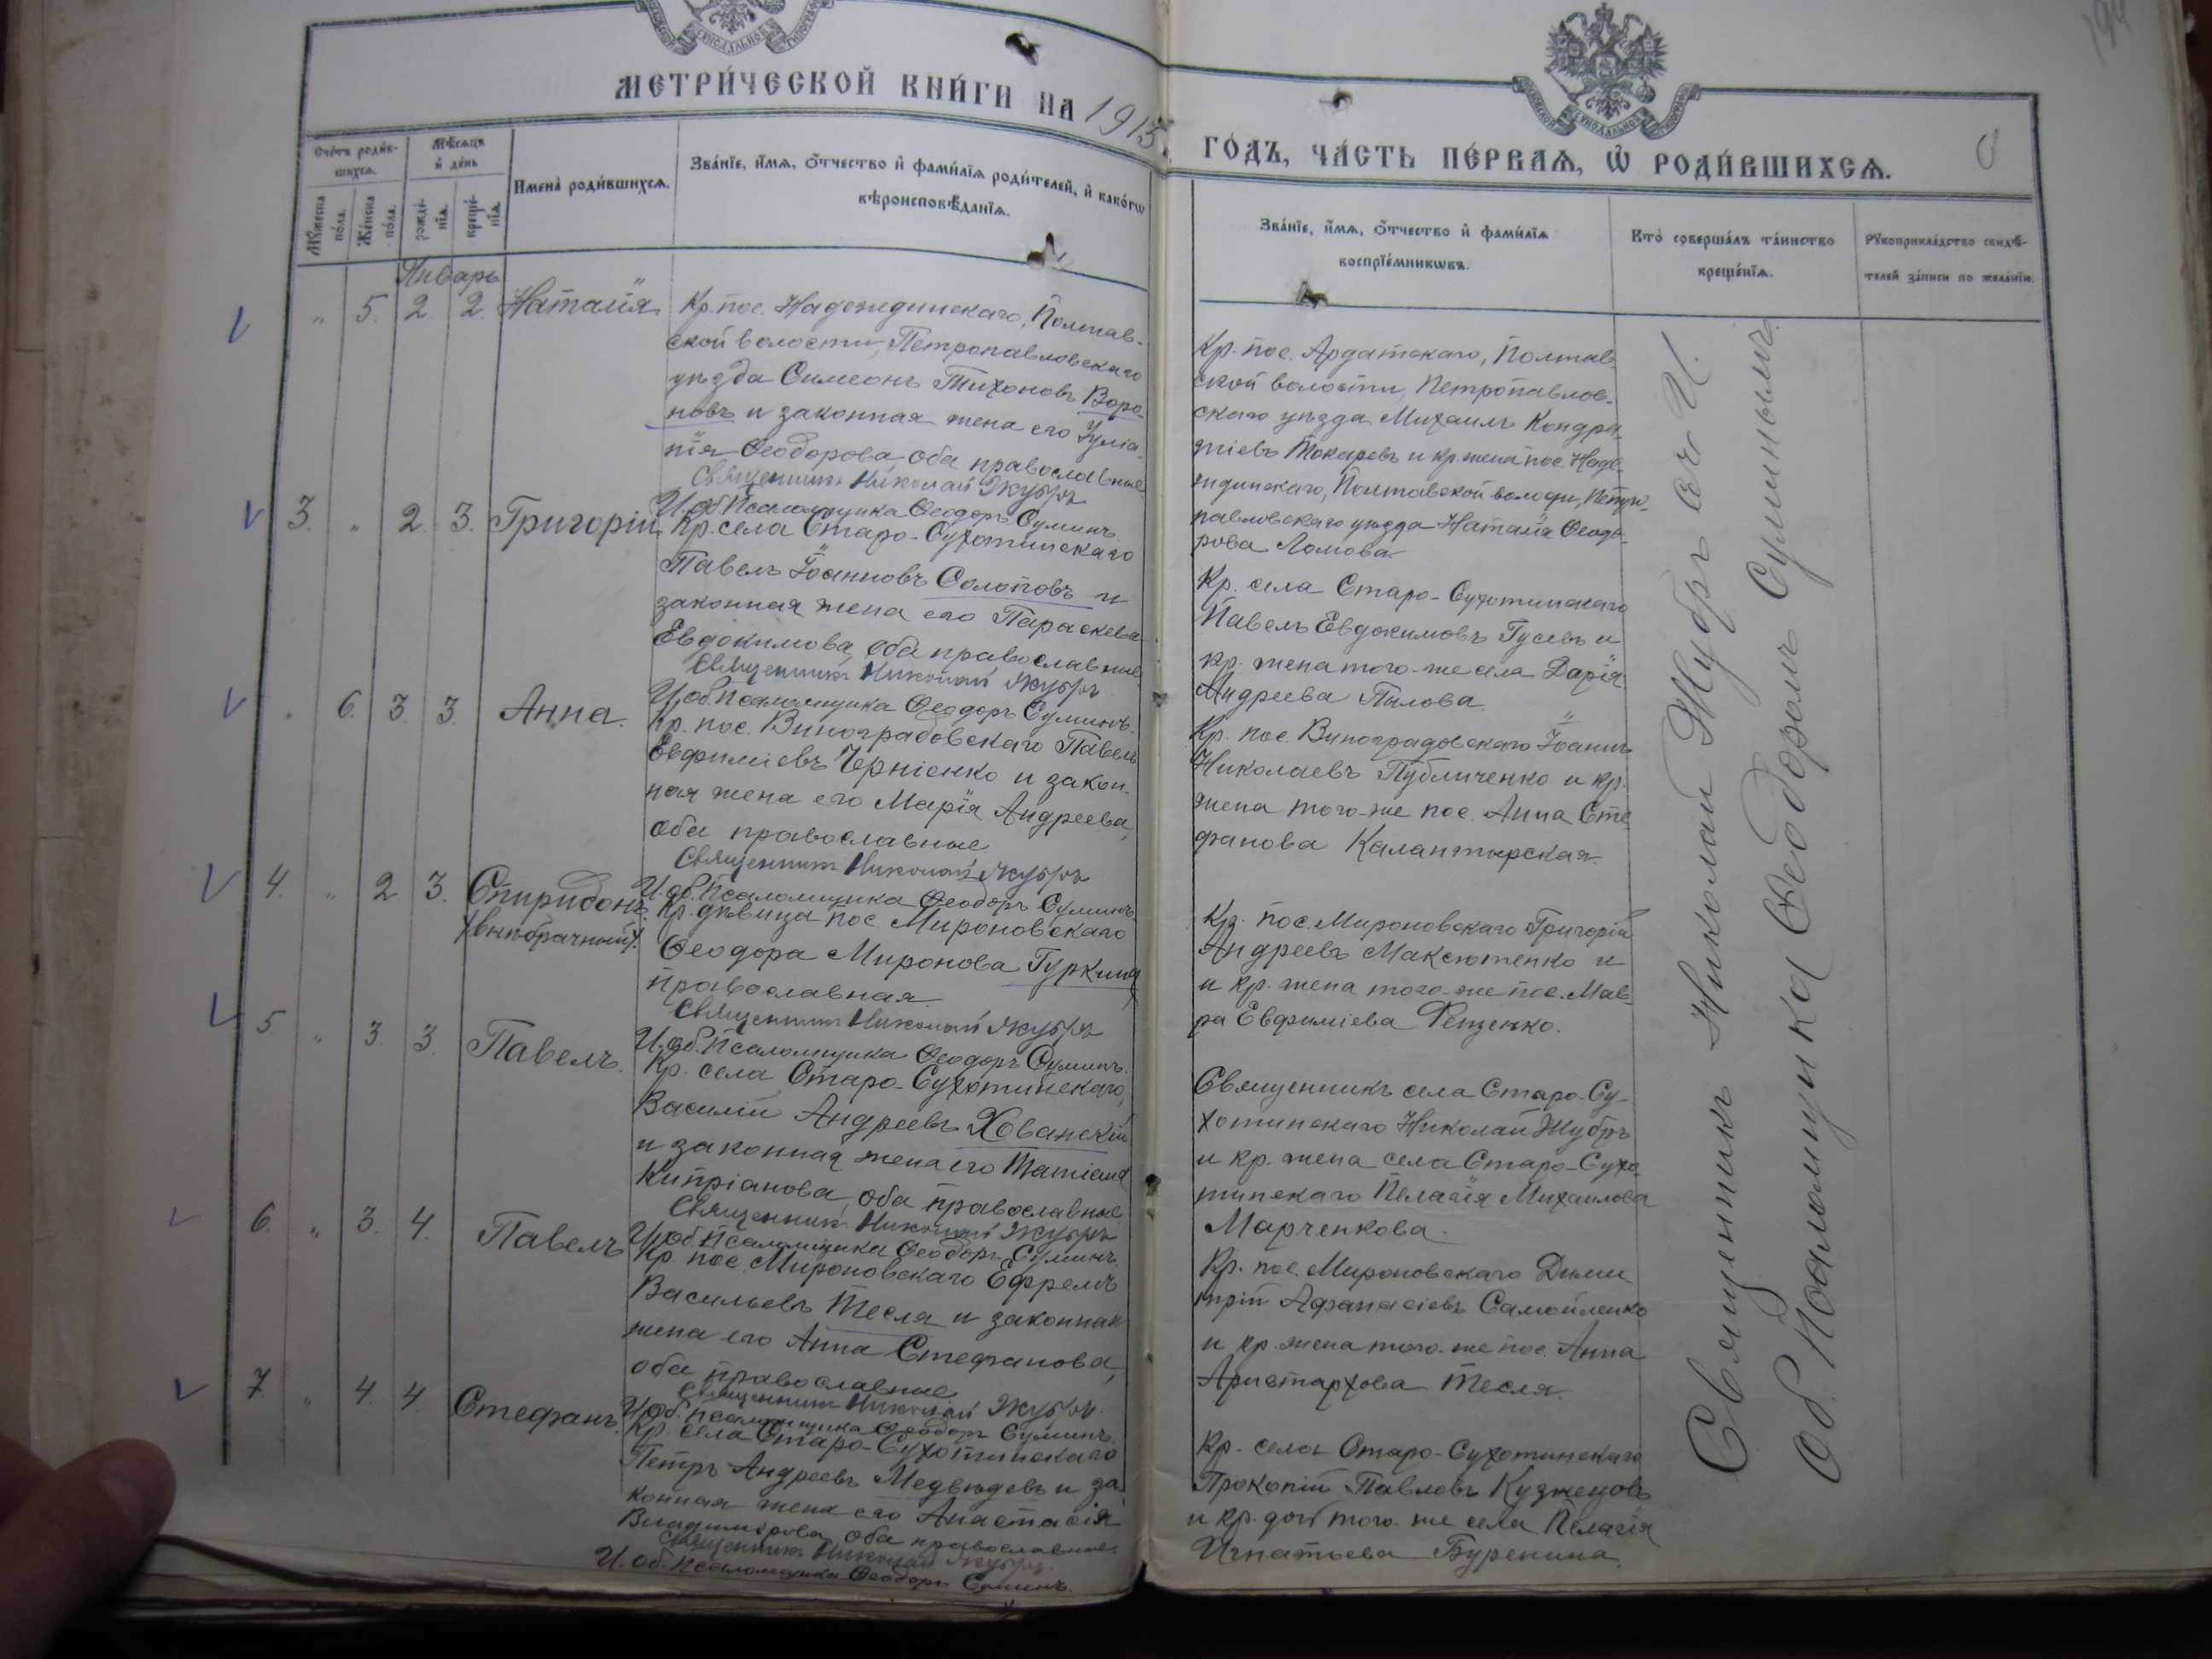 МЕТРИ́ЧЕСКОЙ КНИ́ГИ НА 1913
ГО́ДЪ, ЧА́СТЬ ПЕ́РВАѦ, Ѡ РОДИ́ВШИХСѦ.
Сче́тъ роди́в-
шихсѧ.
Мѣ́сѧцъ
и де́нь
Мꙋ́жеска
по́ла.
Же́нска
по́ла.
рожде́-
нїѧ.
креще́-
нїѧ.
Имена̀ роди́вшихсѧ.
Зва́нїе, и́мѧ, ѻ́тчество и фами́лїѧ роди́телей, и како́гѡ
вѣроисповѣ́данїѧ.
Зва́нїе, и́мѧ, ѻ́тчество и фами́лїѧ
воспрїе́мникѡвъ.
Кто̀ соверша́лъ та́инство
креще́нїѧ.
Рꙋкоприкла́дство свидѣ́-
телей за́писи по жела́нїю.
Январь
" 5. 2. 2. Наталія
Кр. пос. Надеждинскаго, Полтав-
ской волости, Петропавловскаго
уѣзда Симеонъ Тихоновъ Воро-
новъ и законная жена его Іуліа-
нія Ѳеодорова оба православные
Священникъ Николай Жубръ
И. об. Псаломщика Ѳеодоръ Суминъ.
Кр. пос. Ардатскаго, Полтав-
ской волости, Петропавлов-
скаго уѣзда Михаилъ Кондра-
тіевъ Токаревъ и кр. жена пос. Наде-
ждинскаго, Полтавской волости, Петро-
павловскаго уѣзда Наталія Ѳеодо-
рова Ломова.
3. " 2. 3. Григорій
Кр. села Старо-Сухотинскаго
Павелъ Іоанновъ Солоповъ и
законная жена его Параскева
Евдокимова, оба православные
Священникъ Николай Жубръ
И. об. Псаломщика Ѳеодоръ Суминъ.
Кр. села Старо-Сухотинскаго
Павелъ Евдокимовъ Гусевъ и
кр. жена того-же села Дарія
Андреева Пылова.
" 6. 3. 3. Анна.
Кр. пос. Виноградовскаго Павелъ
Евфиміевъ Черніенко и закон-
ная жена его Марія Андреева,
оба православные
Священникъ Николай Жубръ
И. об. Псаломщика Ѳеодоръ Суминъ.
Кр. пос. Виноградовскаго Іоаннъ
Николаевъ Публиченко и кр.
жена того-же пос. Анна Сте-
фанова Калантырская.
4. " 2. 3. Спиридонъ.
(внѣбрачный).
Кр. дѣвица пос. Мироновскаго
Ѳеодора Миронова Гуркина,
православная.
Священникъ Николай Жубръ
И. об. Псаломщика Ѳеодоръ Суминъ.
Кр. пос. Мироновскаго Григорій
Андреевъ Максютенко и
и кр. жена того-же пос. Мав-
ра Евфиміева Фещенко.
5. " 3. 3. Павелъ.
Кр. села Старо-Сухотинскаго,
Василій Андреевъ Хованскій
и законная жена его Татіана
Кипріанова, оба православные
Священникъ Николай Жубръ
И. об. Псаломщика Ѳеодоръ Суминъ.
Священникъ села Старо-Су-
хотинскаго Николай Жубръ
и кр. жена села Старо-Сухо-
тинскаго Пелагія Михаилова
Марченкова.
6. " 3. 4. Павелъ
Кр. пос. Мироновскаго Ефремъ
Васильевъ Тесля и законная
жена его Анна Стефанова,
оба православные
Священникъ Николай Жубръ.
И. об. Псаломщика Ѳеодоръ Суминъ.
Кр. пос. Мироновскаго Дими-
трій Афанасіевъ Самойленко
и кр. жена того-же пос. Анна
Аристархова Тесля.
7. " 4. 4. Стефанъ.
Кр. села Старо-Сухотинскаго
Петръ Андреевъ Медвѣдевъ и за-
конная жена его Анастасія
Владимірова, оба православные.
Священникъ Николай Жубръ.
И. об. Псаломщика Ѳеодоръ Суминъ.
Кр. села Старо-Сухотинскаго
Прокопій Павловъ Кузнецовъ
и кр. доч. того-же села Пелагія
Игнатьева Буренина.
Священникъ Николай Жубръ съ И.
Об. Псаломщика Ѳеодоромъ Суминымъ.